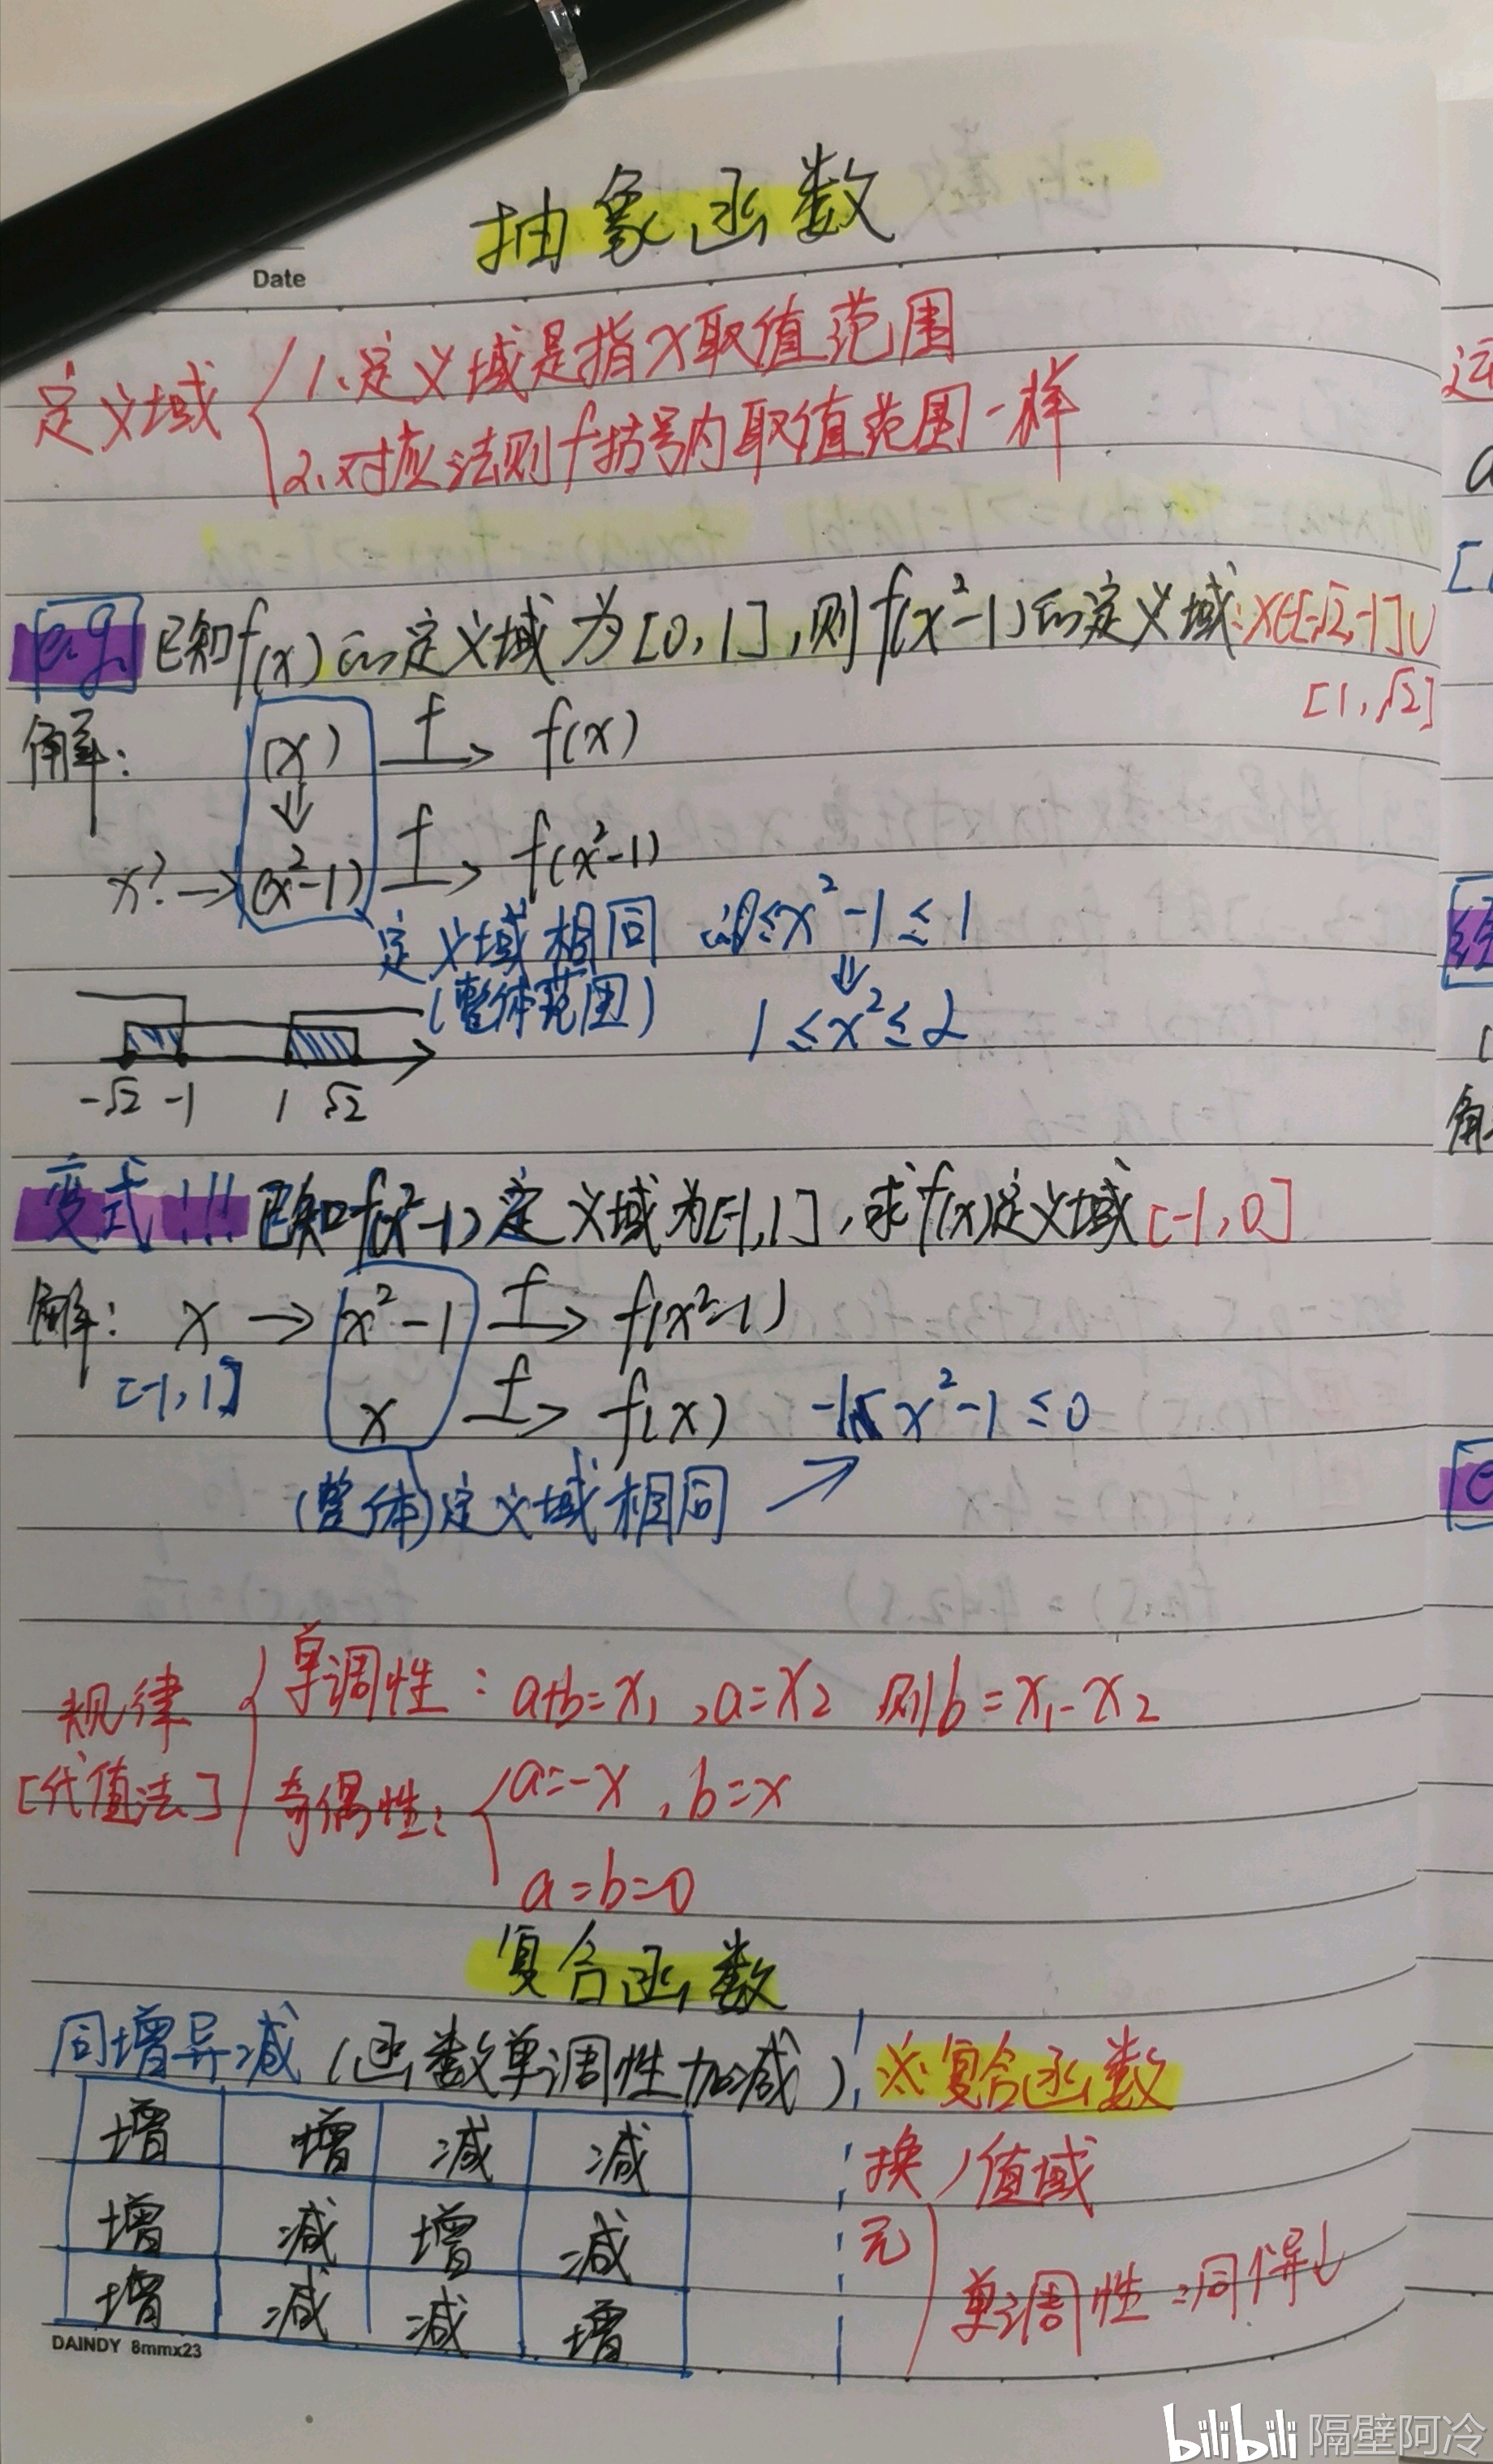 抽象函数
Date
定义域
1、定义域是指x取值范围
2、对应法则f括号内取值范围一样
e.g. 已知f(x)的定义域为[0,1],则f(x²-1)的定义域:x∈[-√2,-1]∪
[1,√2]
解: (x) f→ f(x)
⇓
x?→(x²-1) f→ f(x²-1)
定义域相同 ∴0≤x²-1≤1
(整体范围) ⇓
1≤x²≤2
-√2 -1 1 √2
变式!!! 已知f(x²-1)定义域为[-1,1],求f(x)定义域[-1,0]
解: x → x²-1 f→ f(x²-1)
[-1,1] x f→ f(x) -1≤x²-1≤0
(整体)定义域相同
规律
[代值法]
单调性:a+b=x₁,a=x₂ 则b=x₁-x₂
奇偶性: a=-x,b=x
a=b=0
复合函数
同增异减(函数单调性加减)
增 增 减 减
增 减 增 减
增 减 减 增
※复合函数
换元
值域
单调性:同↑异↓
DAINDY 8mmx23
bilibili 隔壁阿冷